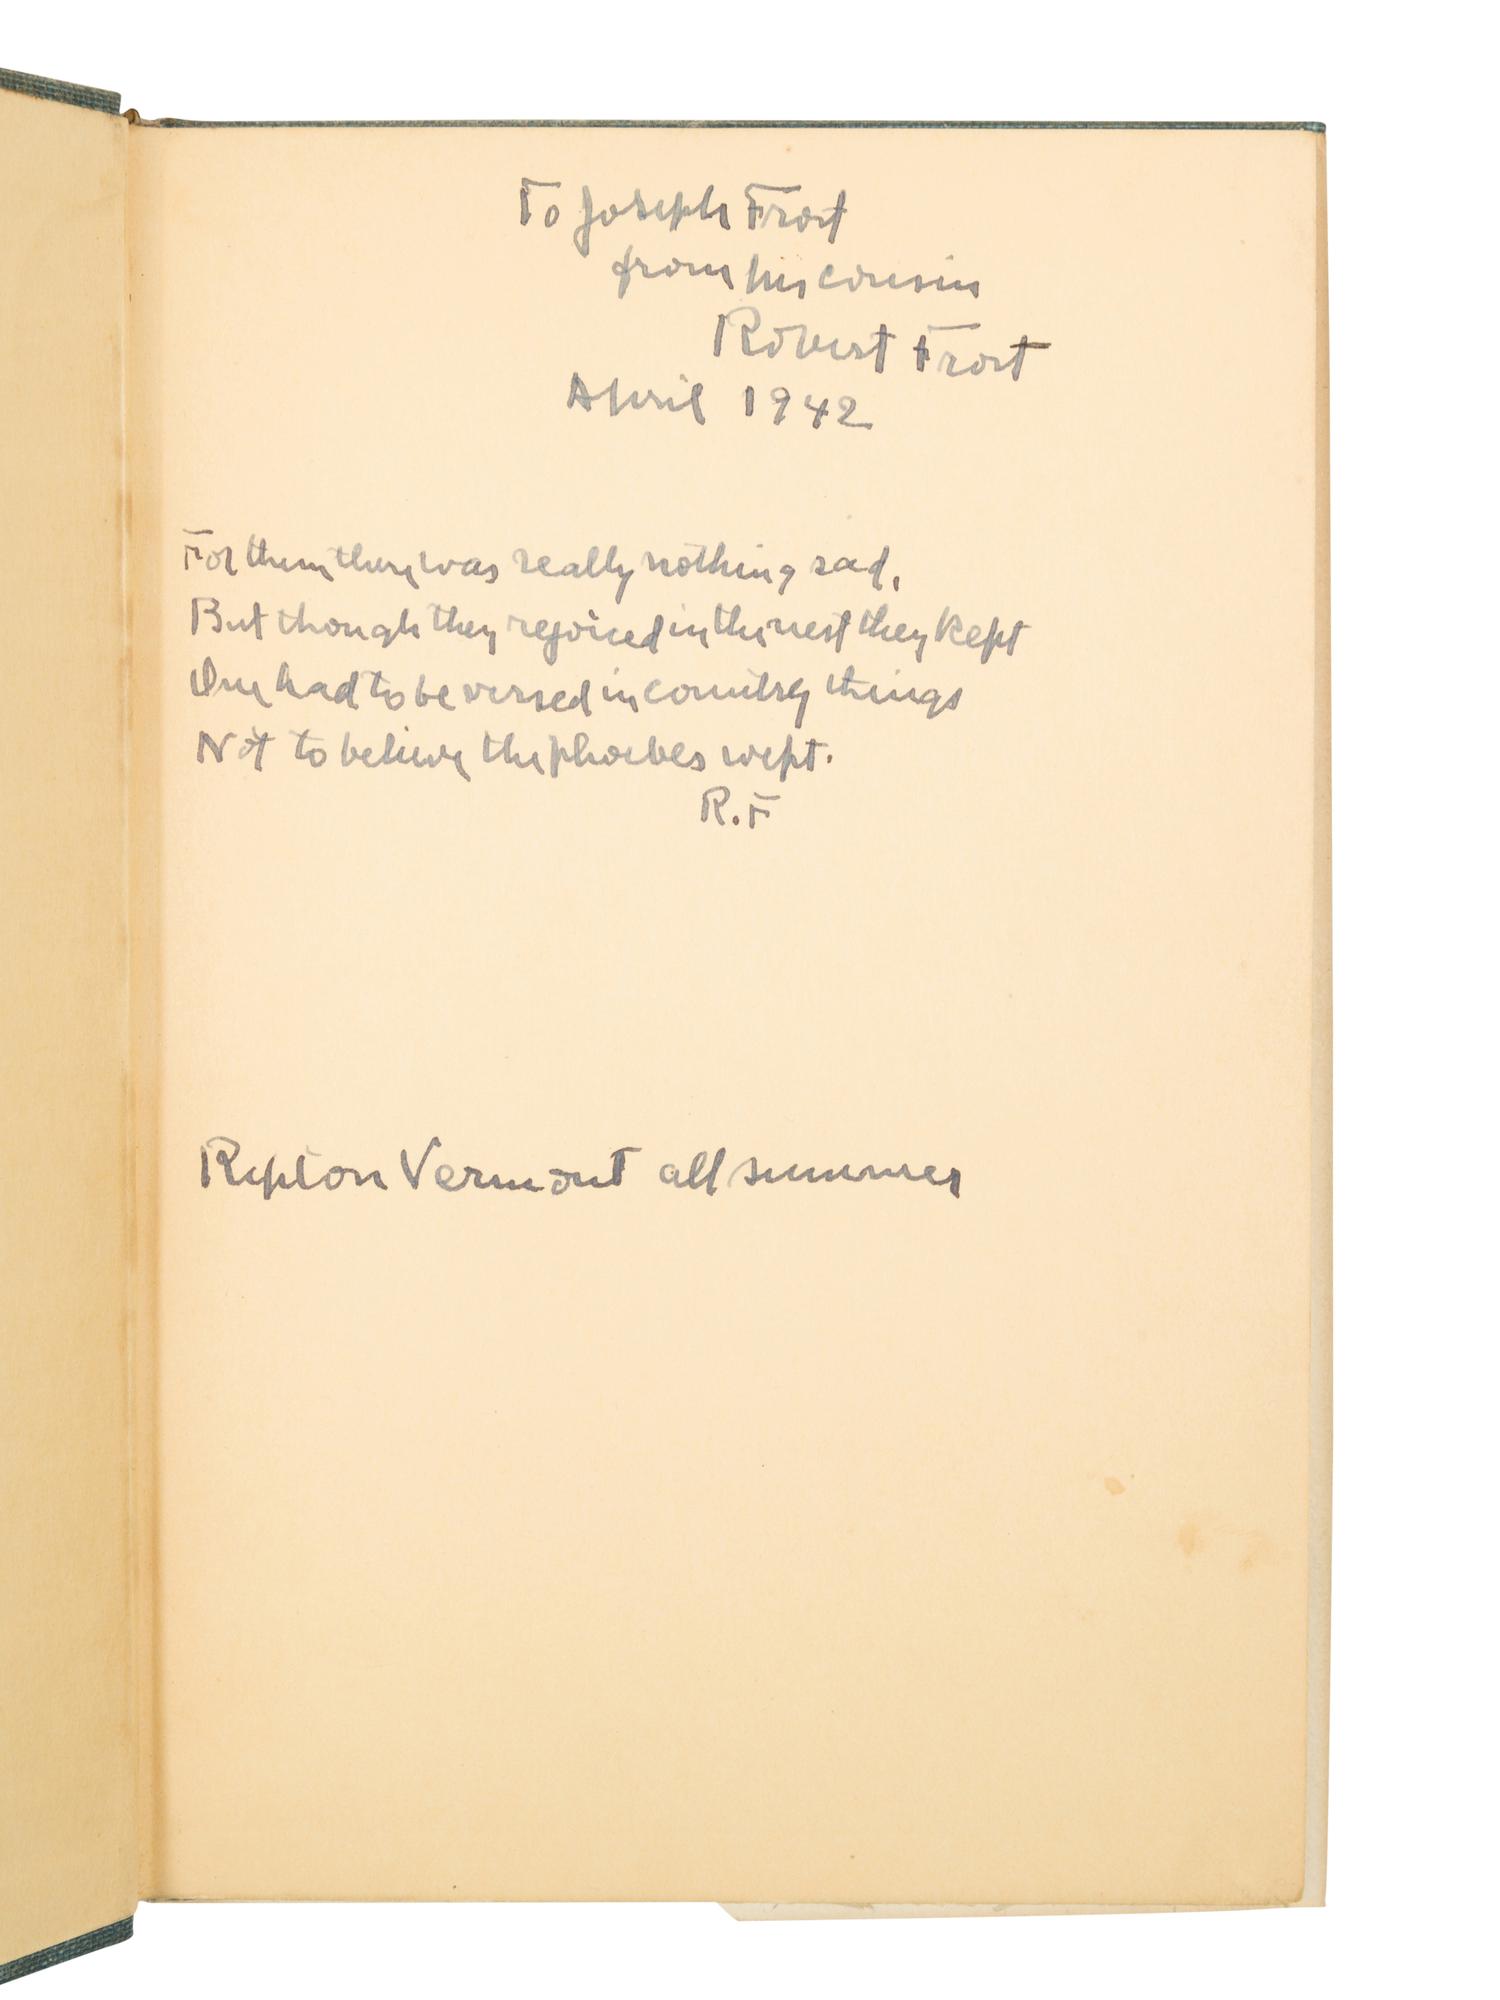 To Joseph Frost
from his cousin
Robert Frost
April 1942
For them there was really nothing sad,
But though they rejoiced in the nest they kept
One had to be versed in country things
Not to believe the phoebes wept.
R.F
Ripton Vermont all summer